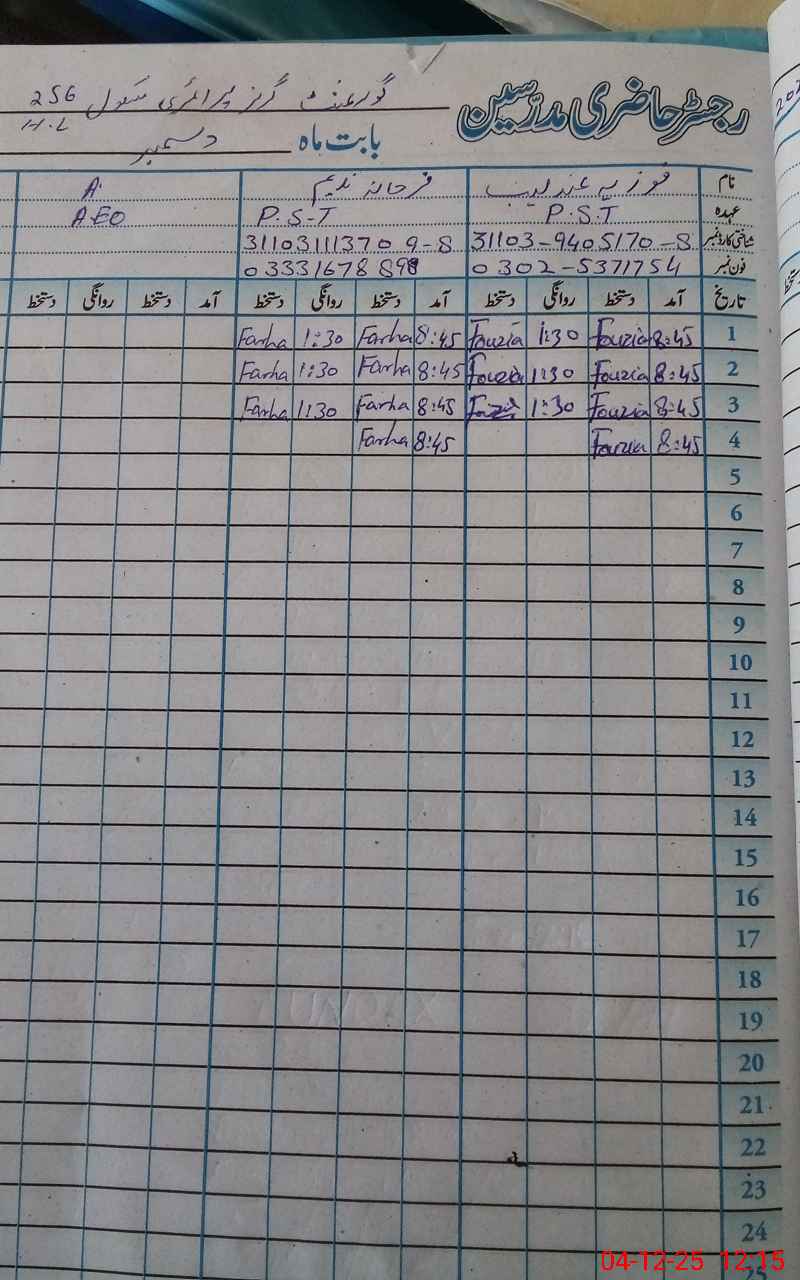 رجسٹر حاضری مدرسین گورنمنٹ گرلز پرائمری سکول 256
H.L
بابت ماہ دسمبر
نام فوزیہ عندلیب فرحانہ ندیم A.
عہدہ P.S.T P.S.T AEO
شناختی کارڈ نمبر 31103-9405170-8 31103111370 9-8
فون نمبر 0302-5371754
تاریخ آمد دستخط روانگی دستخط آمد دستخط روانگی دستخط آمد دستخط روانگی دستخط
1 8:45 Fouzia 1:30 Fouzia 8:45 Farha 1:30 Farha
2 8:45 Fouzia 1:30 Fouzia 8:45 Farha 1:30 Farha
3 8:45 Fouzia 1:30 8:45 Farha 1:30 Farha
4 8:45 Fouzia 8:45 Farha
5
6
7
8
9
10
11
12
13
14
15
16
17
18
19
20
21
22
23
24
25
04-12-25 12:15